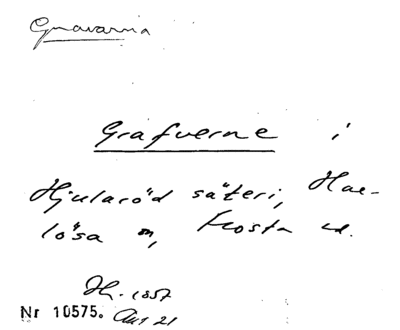 Gravarna
Grafverne i
Hjularöd säteri, Har-
lösa sn, Frosta hd.
Hf. 1857
Nr 10575. Aur 21